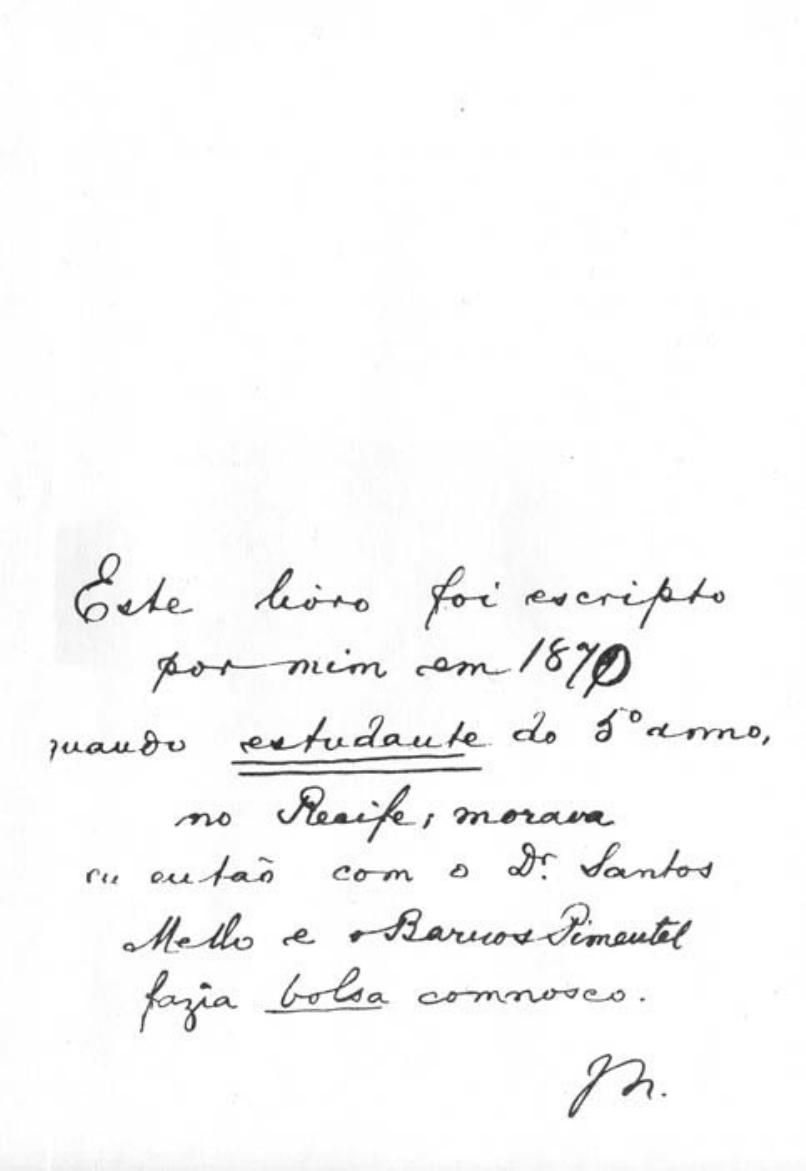 Este livro foi escripto
por mim em 1870
quando estudante do 5º anno,
no Recife; morava
eu então com o Dr. Santos
Mello e o Barros Pimentel
fazia bolsa comnosco.
JN.